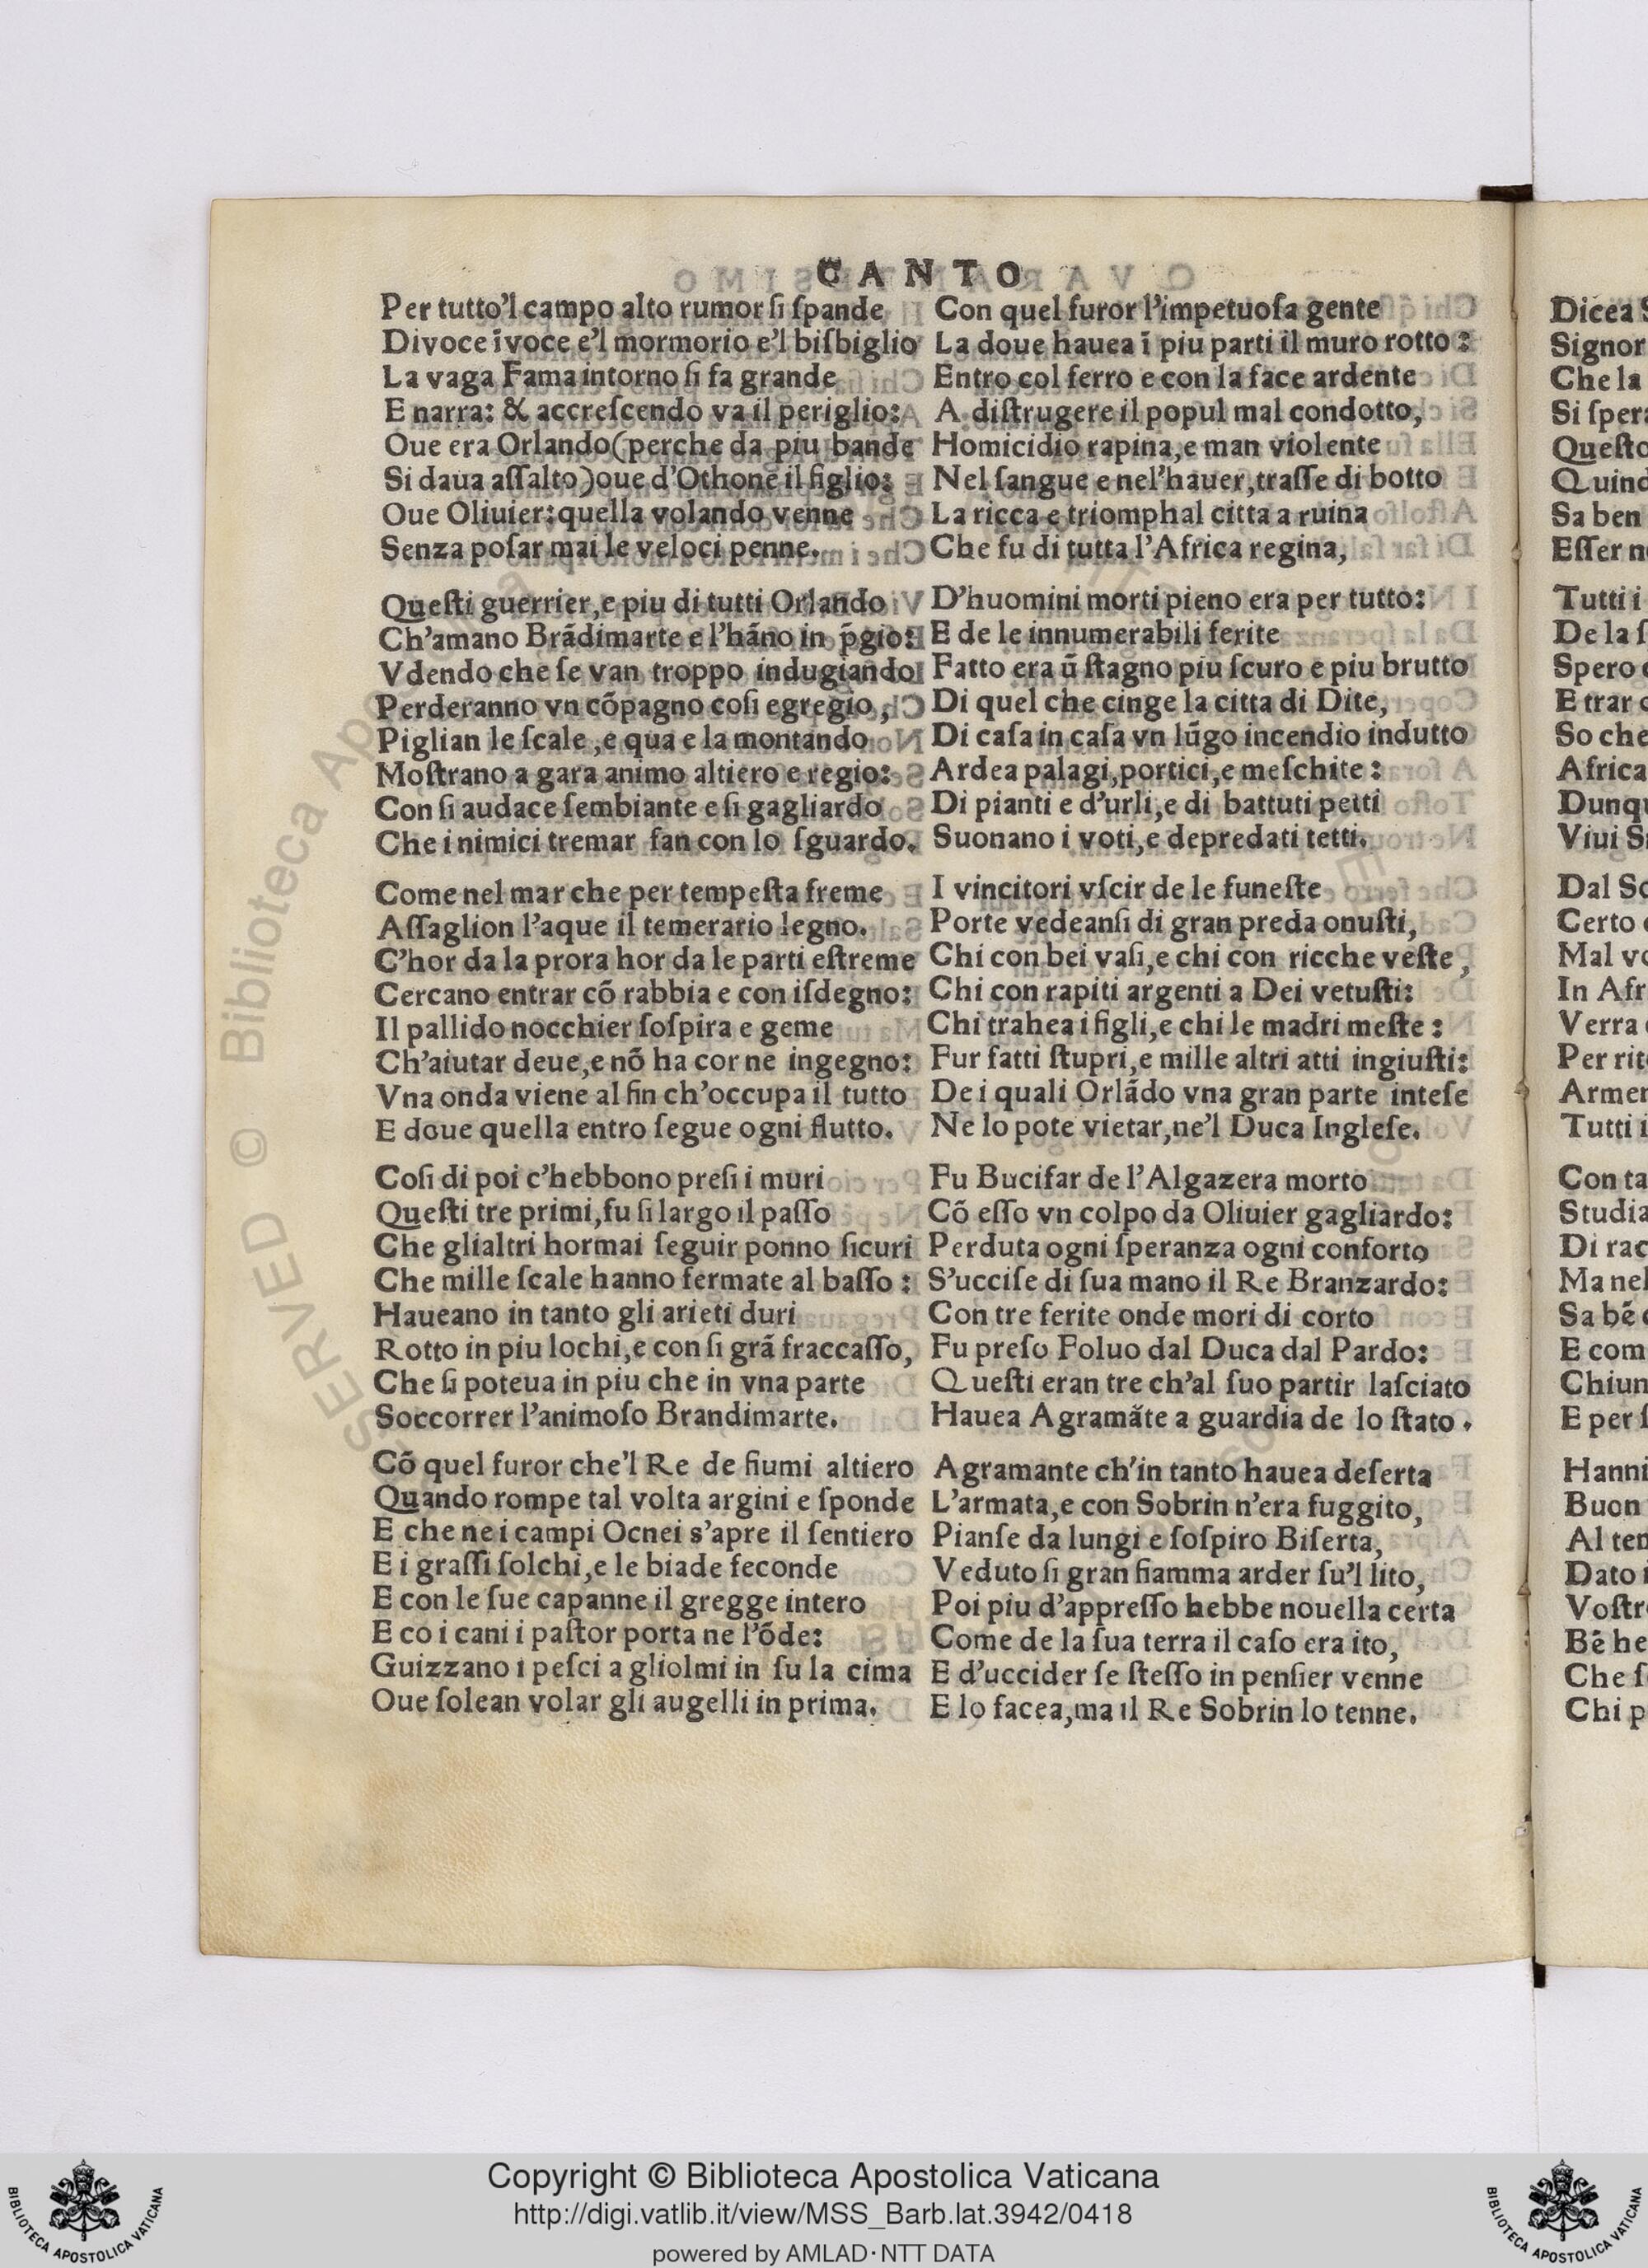 CANTO
Per tutto'l campo alto rumor ſi ſpande
Divoce ĩvoce e'l mormorio e'l biſbiglio
La vaga Fama intorno ſi fa grande
E narra: & accreſcendo va il periglio:
Oue era Orlando(perche da piu bande
Si daua aſſalto)oue d'Othone il figlio:
Oue Oliuier:quella volando venne
Senza poſar mai le veloci penne.
Queſti guerrier,e piu di tutti Orlando
Ch'amano Brãdimarte e l'hãno in p̃gio:
Vdendo che ſe van troppo indugiando
Perderanno vn cõpagno coſi egregio,
Piglian le ſcale,e qua e la montando
Moſtrano a gara animo altiero e regio:
Con ſi audace ſembiante e ſi gagliardo
Che i nimici tremar fan con lo ſguardo.
Come nel mar che per tempeſta freme
Aſſaglion l'aque il temerario legno.
C'hor da la prora hor da le parti eſtreme
Cercano entrar cõ rabbia e con iſdegno:
Il pallido nocchier ſoſpira e geme
Ch'aiutar deue,e nõ ha cor ne ingegno:
Vna onda viene al fin ch'occupa il tutto
E doue quella entro ſegue ogni flutto.
Coſi di poi c'hebbono preſi i muri
Queſti tre primi,fu ſi largo il paſſo
Che glialtri hormai ſeguir ponno ſicuri
Che mille ſcale hanno fermate al baſſo:
Haueano in tanto gli arieti duri
Rotto in piu lochi,e con ſi grã fraccaſſo,
Che ſi poteua in piu che in vna parte
Soccorrer l'animoſo Brandimarte.
Cõ quel furor che'l Re de fiumi altiero
Quando rompe tal volta argini e ſponde
E che ne i campi Ocnei s'apre il ſentiero
E i graſſi ſolchi,e le biade feconde
E con le ſue capanne il gregge intero
E co i cani i paſtor porta ne l'õde:
Guizzano i peſci a gliolmi in ſu la cima
Oue ſolean volar gli augelli in prima.
Con quel furor l'impetuoſa gente
La doue hauea ĩ piu parti il muro rotto:
Entro col ferro e con la face ardente
A diſtrugere il popul mal condotto,
Homicidio rapina,e man violente
Nel ſangue e nel'hauer,traſſe di botto
La ricca e triomphal citta a ruina
Che fu di tutta l'Africa regina,
D'huomini morti pieno era per tutto:
E de le innumerabili ferite
Fatto era ũ ſtagno piu ſcuro e piu brutto
Di quel che cinge la citta di Dite,
Di caſa in caſa vn lũgo incendio indutto
Ardea palagi,portici,e meſchite:
Di pianti e d'urli,e di battuti petti
Suonano i voti,e depredati tetti.
I vincitori vſcir de le funeſte
Porte vedeanſi di gran preda onuſti,
Chi con bei vaſi,e chi con ricche veſte,
Chi con rapiti argenti a Dei vetuſti:
Chi trahea i figli,e chi le madri meſte:
Fur fatti ſtupri,e mille altri atti ingiuſti:
De i quali Orlãdo vna gran parte inteſe
Ne lo pote vietar,ne'l Duca Ingleſe.
Fu Bucifar de l'Algazera morto
Cõ eſſo vn colpo da Oliuier gagliardo:
Perduta ogni ſperanza ogni conforto
S'ucciſe di ſua mano il Re Branzardo:
Con tre ferite onde mori di corto
Fu preſo Foluo dal Duca dal Pardo:
Queſti eran tre ch'al ſuo partir laſciato
Hauea Agramãte a guardia de lo ſtato.
Agramante ch'in tanto hauea deſerta
L'armata,e con Sobrin n'era fuggito,
Pianſe da lungi e ſoſpiro Biſerta,
Veduto ſi gran fiamma arder ſu'l lito,
Poi piu d'appreſſo hebbe nouella certa
Come de la ſua terra il caſo era ito,
E d'uccider ſe ſteſſo in penſier venne
E lo facea,ma il Re Sobrin lo tenne.
Dicea
Signor
Che la
Si ſper
Queſto
Quind
Sa ben
Eſſer n
Tutti i
De la ſ
Spero
E trar
So che
Africa
Dunqu
Viui
Dal Sc
Certo
Mal vo
In Afr
Verra
Per rit
Armen
Tutti i
Con ta
Studia
Di rac
Ma nel
Sa bẽ
E com
Chiun
E per
Hanni
Buon
Al tem
Dato
Voſtr
Bẽ he
Che ſ
Chi p
SERVED © Biblioteca Ap
Copyright © Biblioteca Apostolica Vaticana
http://digi.vatlib.it/view/MSS_Barb.lat.3942/0418
powered by AMLAD·NTT DATA
BIBLIOTECA APOSTOLICA VATICANA
BIBLIOTECA APOSTOLICA VATICANA